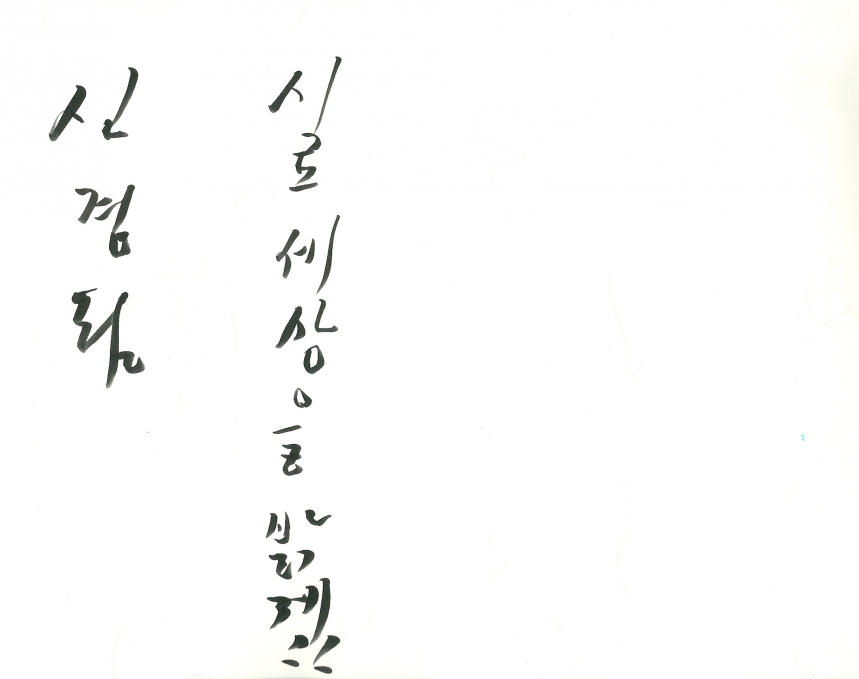 시로 세상을
신경림